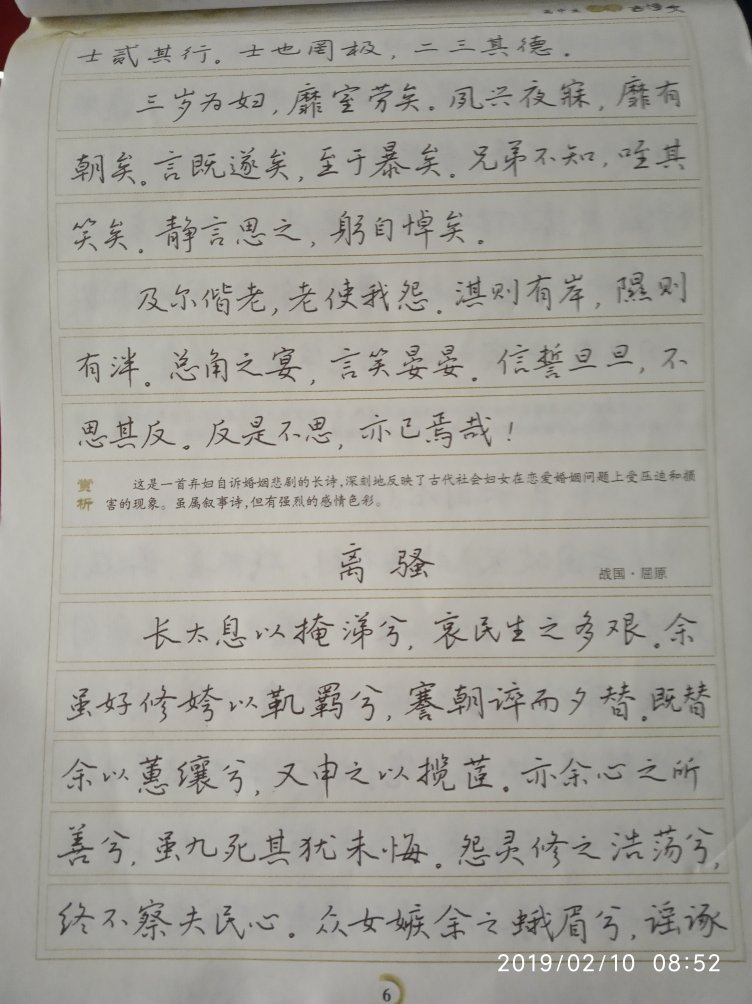 古诗文
士贰其行。士也罔极，二三其德。
三岁为妇，靡室劳矣。夙兴夜寐，靡有
朝矣。言既遂矣，至于暴矣。兄弟不知，咥其
笑矣。静言思之，躬自悼矣。
及尔偕老，老使我怨。淇则有岸，隰则
有泮。总角之宴，言笑晏晏。信誓旦旦，不
思其反。反是不思，亦已焉哉！
赏析
这是一首弃妇自诉婚姻悲剧的长诗，深刻地反映了古代社会妇女在恋爱婚姻问题上受压迫和损
害的现象。虽属叙事诗，但有强烈的感情色彩。
离骚
战国·屈原
长太息以掩涕兮，哀民生之多艰。余
虽好修姱以靰羁兮，謇朝谇而夕替。既替
余以蕙纕兮，又申之以揽茞。亦余心之所
善兮，虽九死其犹未悔。怨灵修之浩荡兮，
终不察夫民心。众女嫉余之蛾眉兮，谣诼
2019/02/10 08:52
6